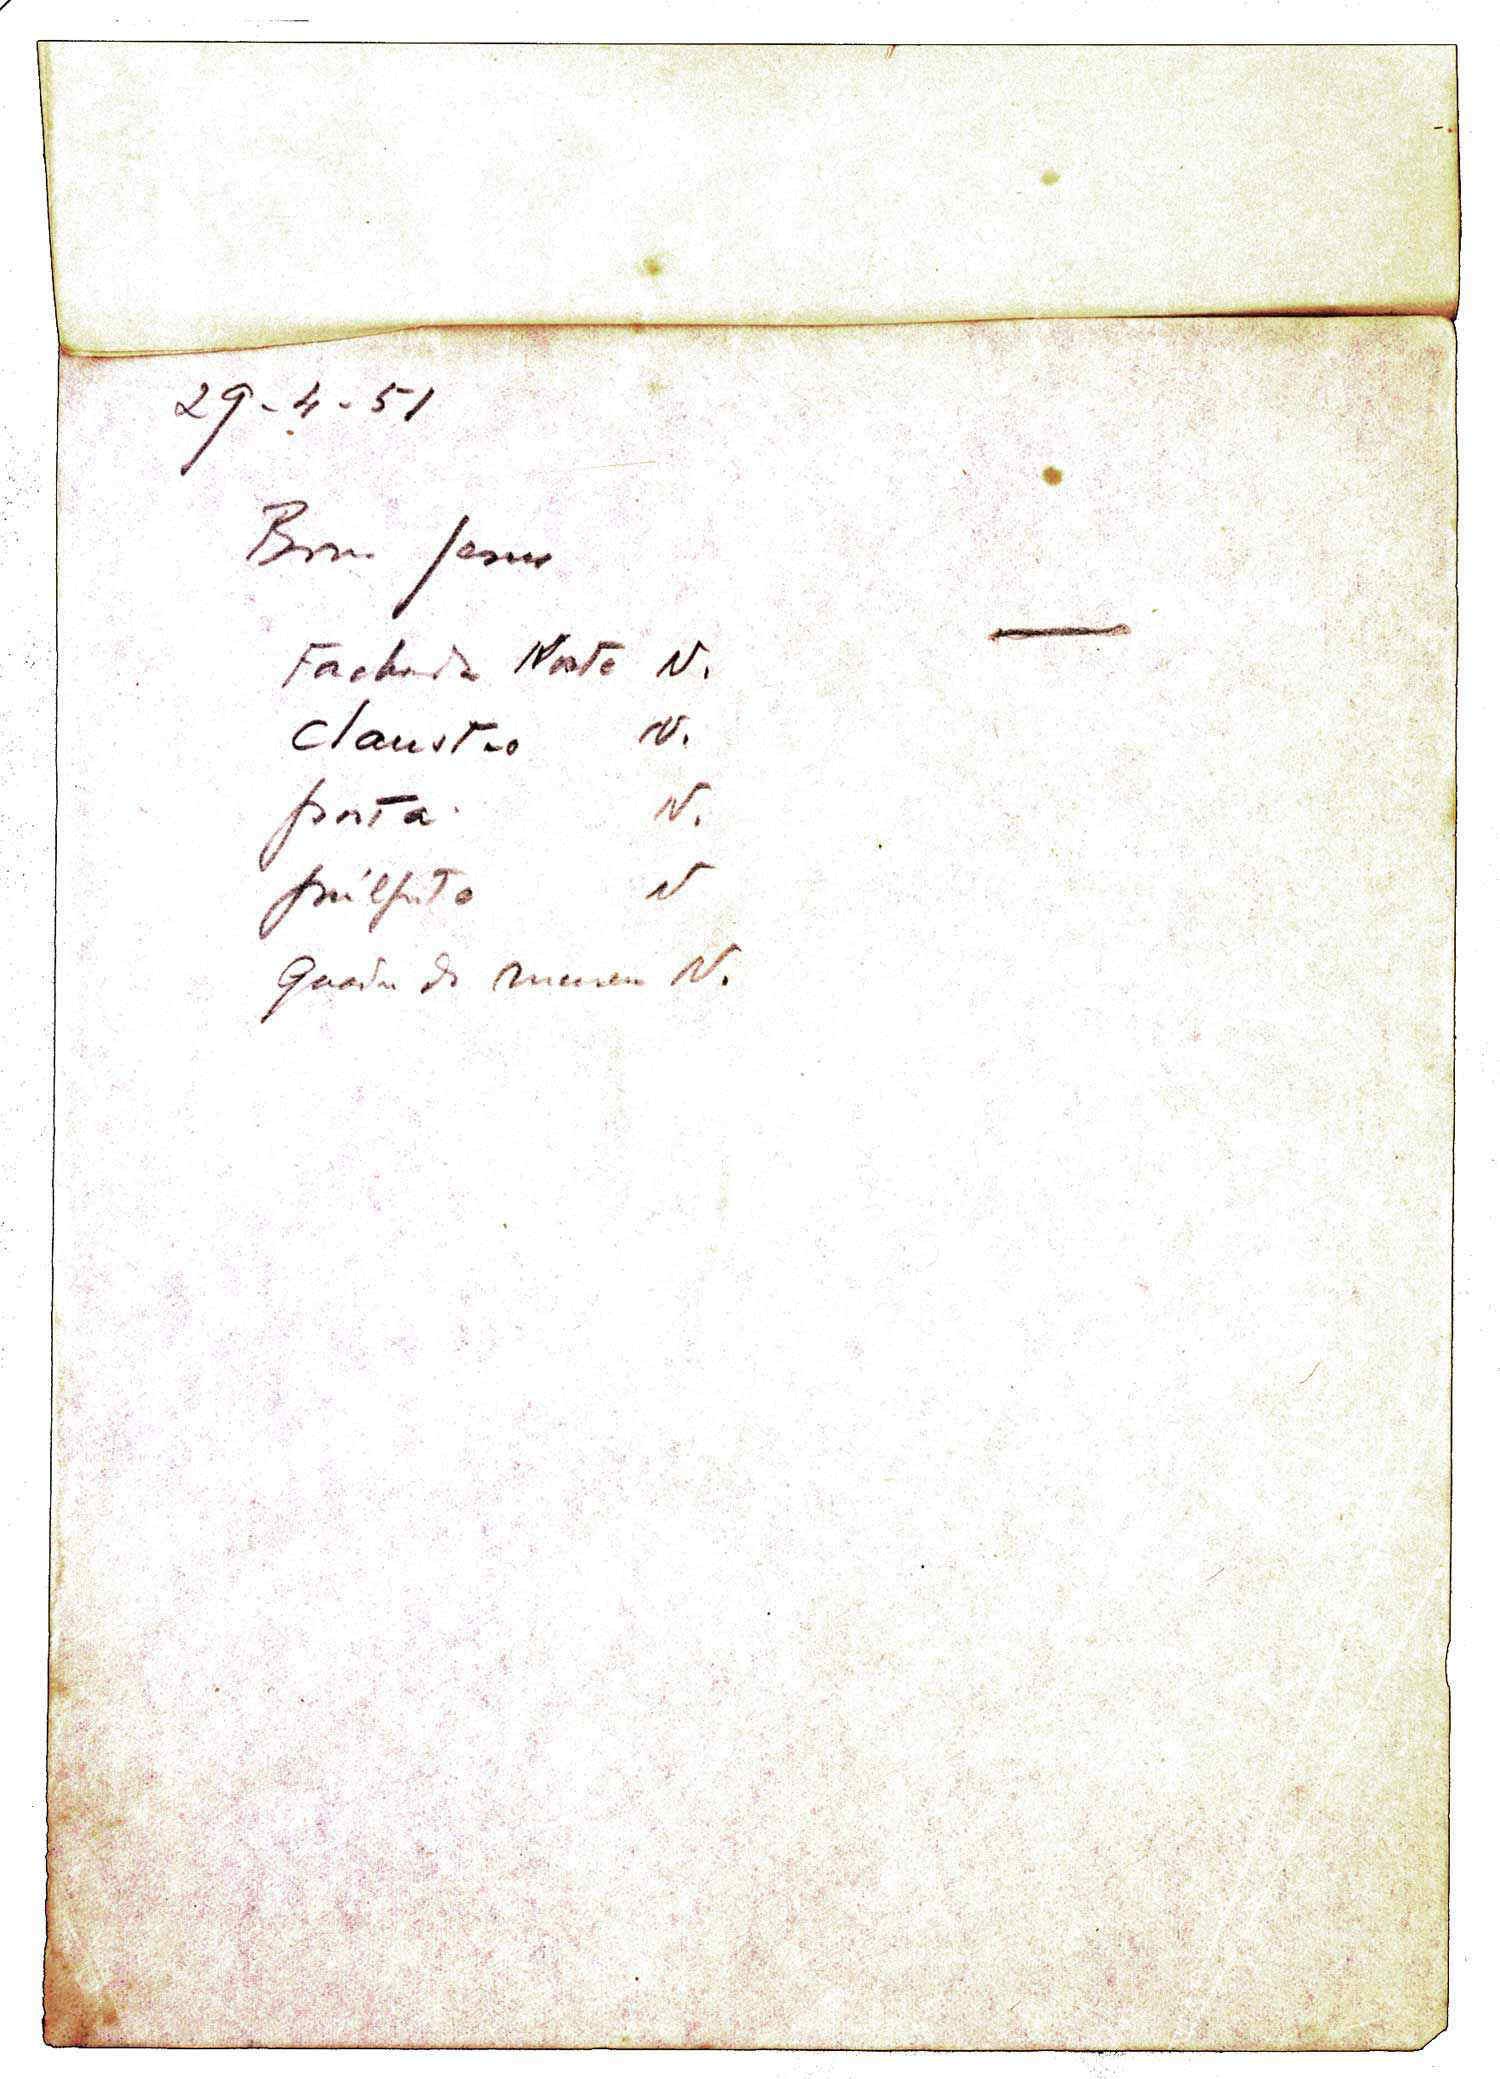 29-4-51
Bom Jesus
Fachada Norte N.
Claustro N.
porta N.
púlpito N
Guarda do museu N.